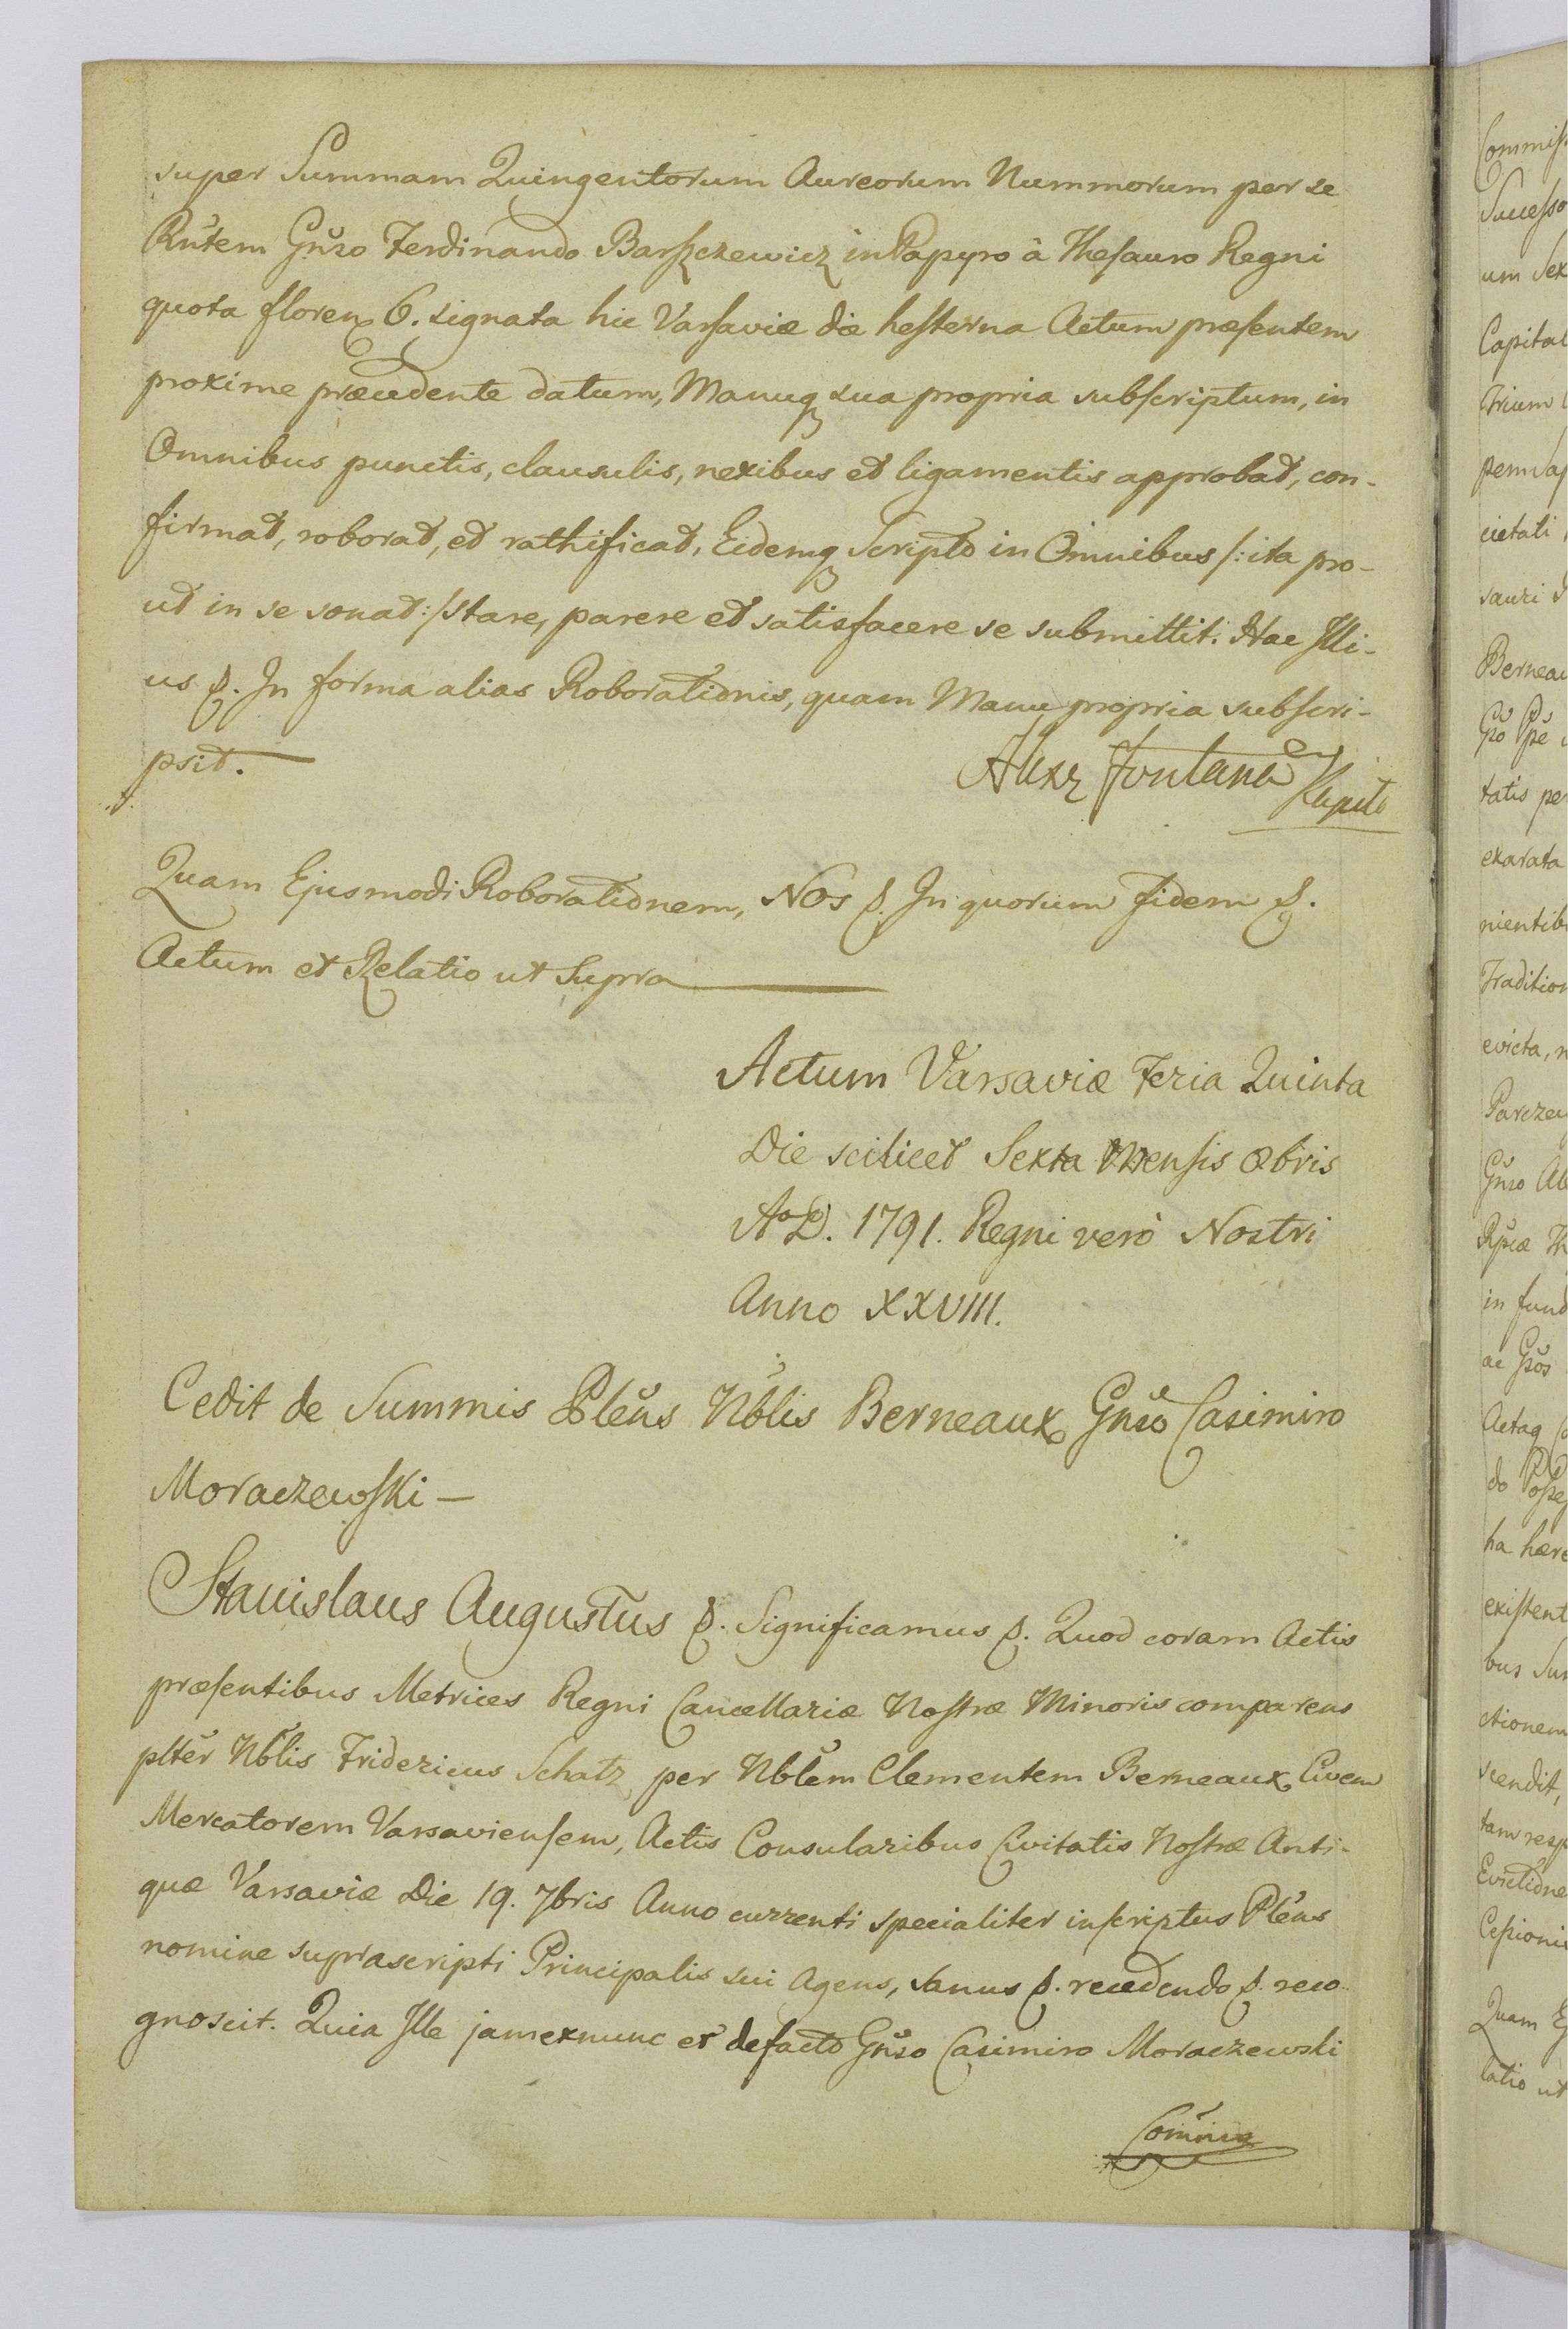 super Summam Quingentorum Aureorum Nummorum per se
Rñtem Gñso Ferdinando Barszczewicz in Papyro à Thesauro Regni
quota floren 6. signata hic Varsaviæ die hesterna Actum præsentem
proxime præcedente datum, Manuq sua propria subscriptum, in
Omnibus punctis, clausulis, nexibus et ligamentis approbat, con-
firmat, roborat, et rathificat, Eidemq Scripto in Omnibus /: ita pro-
ut in se sonat :/ stare, parere et satisfacere se submittit. Hac Illi-
us &. In forma alias Roborationis, quam Manu propria subscri-
psit.
Alexr Fontana
Kapit
Quam Ejusmodi Roborationem, Nos &. In quorum fidem &.
Actum et Relatio ut Supra
Actum Varsaviæ Feria Quinta
Die scilicet Sexta Mensis 8bris
A°D. 1791. Regni verò Nostri
Anno XXVIII.
Cedit de Summis Pleñs Nblis Berneaux Gñso Casimiro
Moraczewski —
Stanislaus Augustus &. Significamus &. Quod coram Actis
præsentibus Metrices Regni Cancellariæ Nostræ Minoris comparens
plter Nblis Fridericus Schatz per Nblem Clementem Berneaux Civem
Mercatorem Varsaviensem, Actis Consularibus Civitatis Nostræ Anti-
quæ Varsaviæ Die 19. 7bris Anno currenti specialiter inscriptus Pleñs
nomine suprascripti Principalis sui Agens, sanus &. recedendo &. reco-
gnoscit. Quia Ille jam exnunc et defacto Gñso Casimiro Moraczewski
Commis
Commiss
Successo
um Sex
Capital
trium
cietati
sauri
Berneau
tatis per
exarata
nientib
Tradition
evicta, n
Parczew
Gñso Al
in fund
ac Gños
Actaq
ha hære
existent
bus Su
ctionem
scendit,
tam resp
Evictione
Cessioni
Quam Ej
latio ut